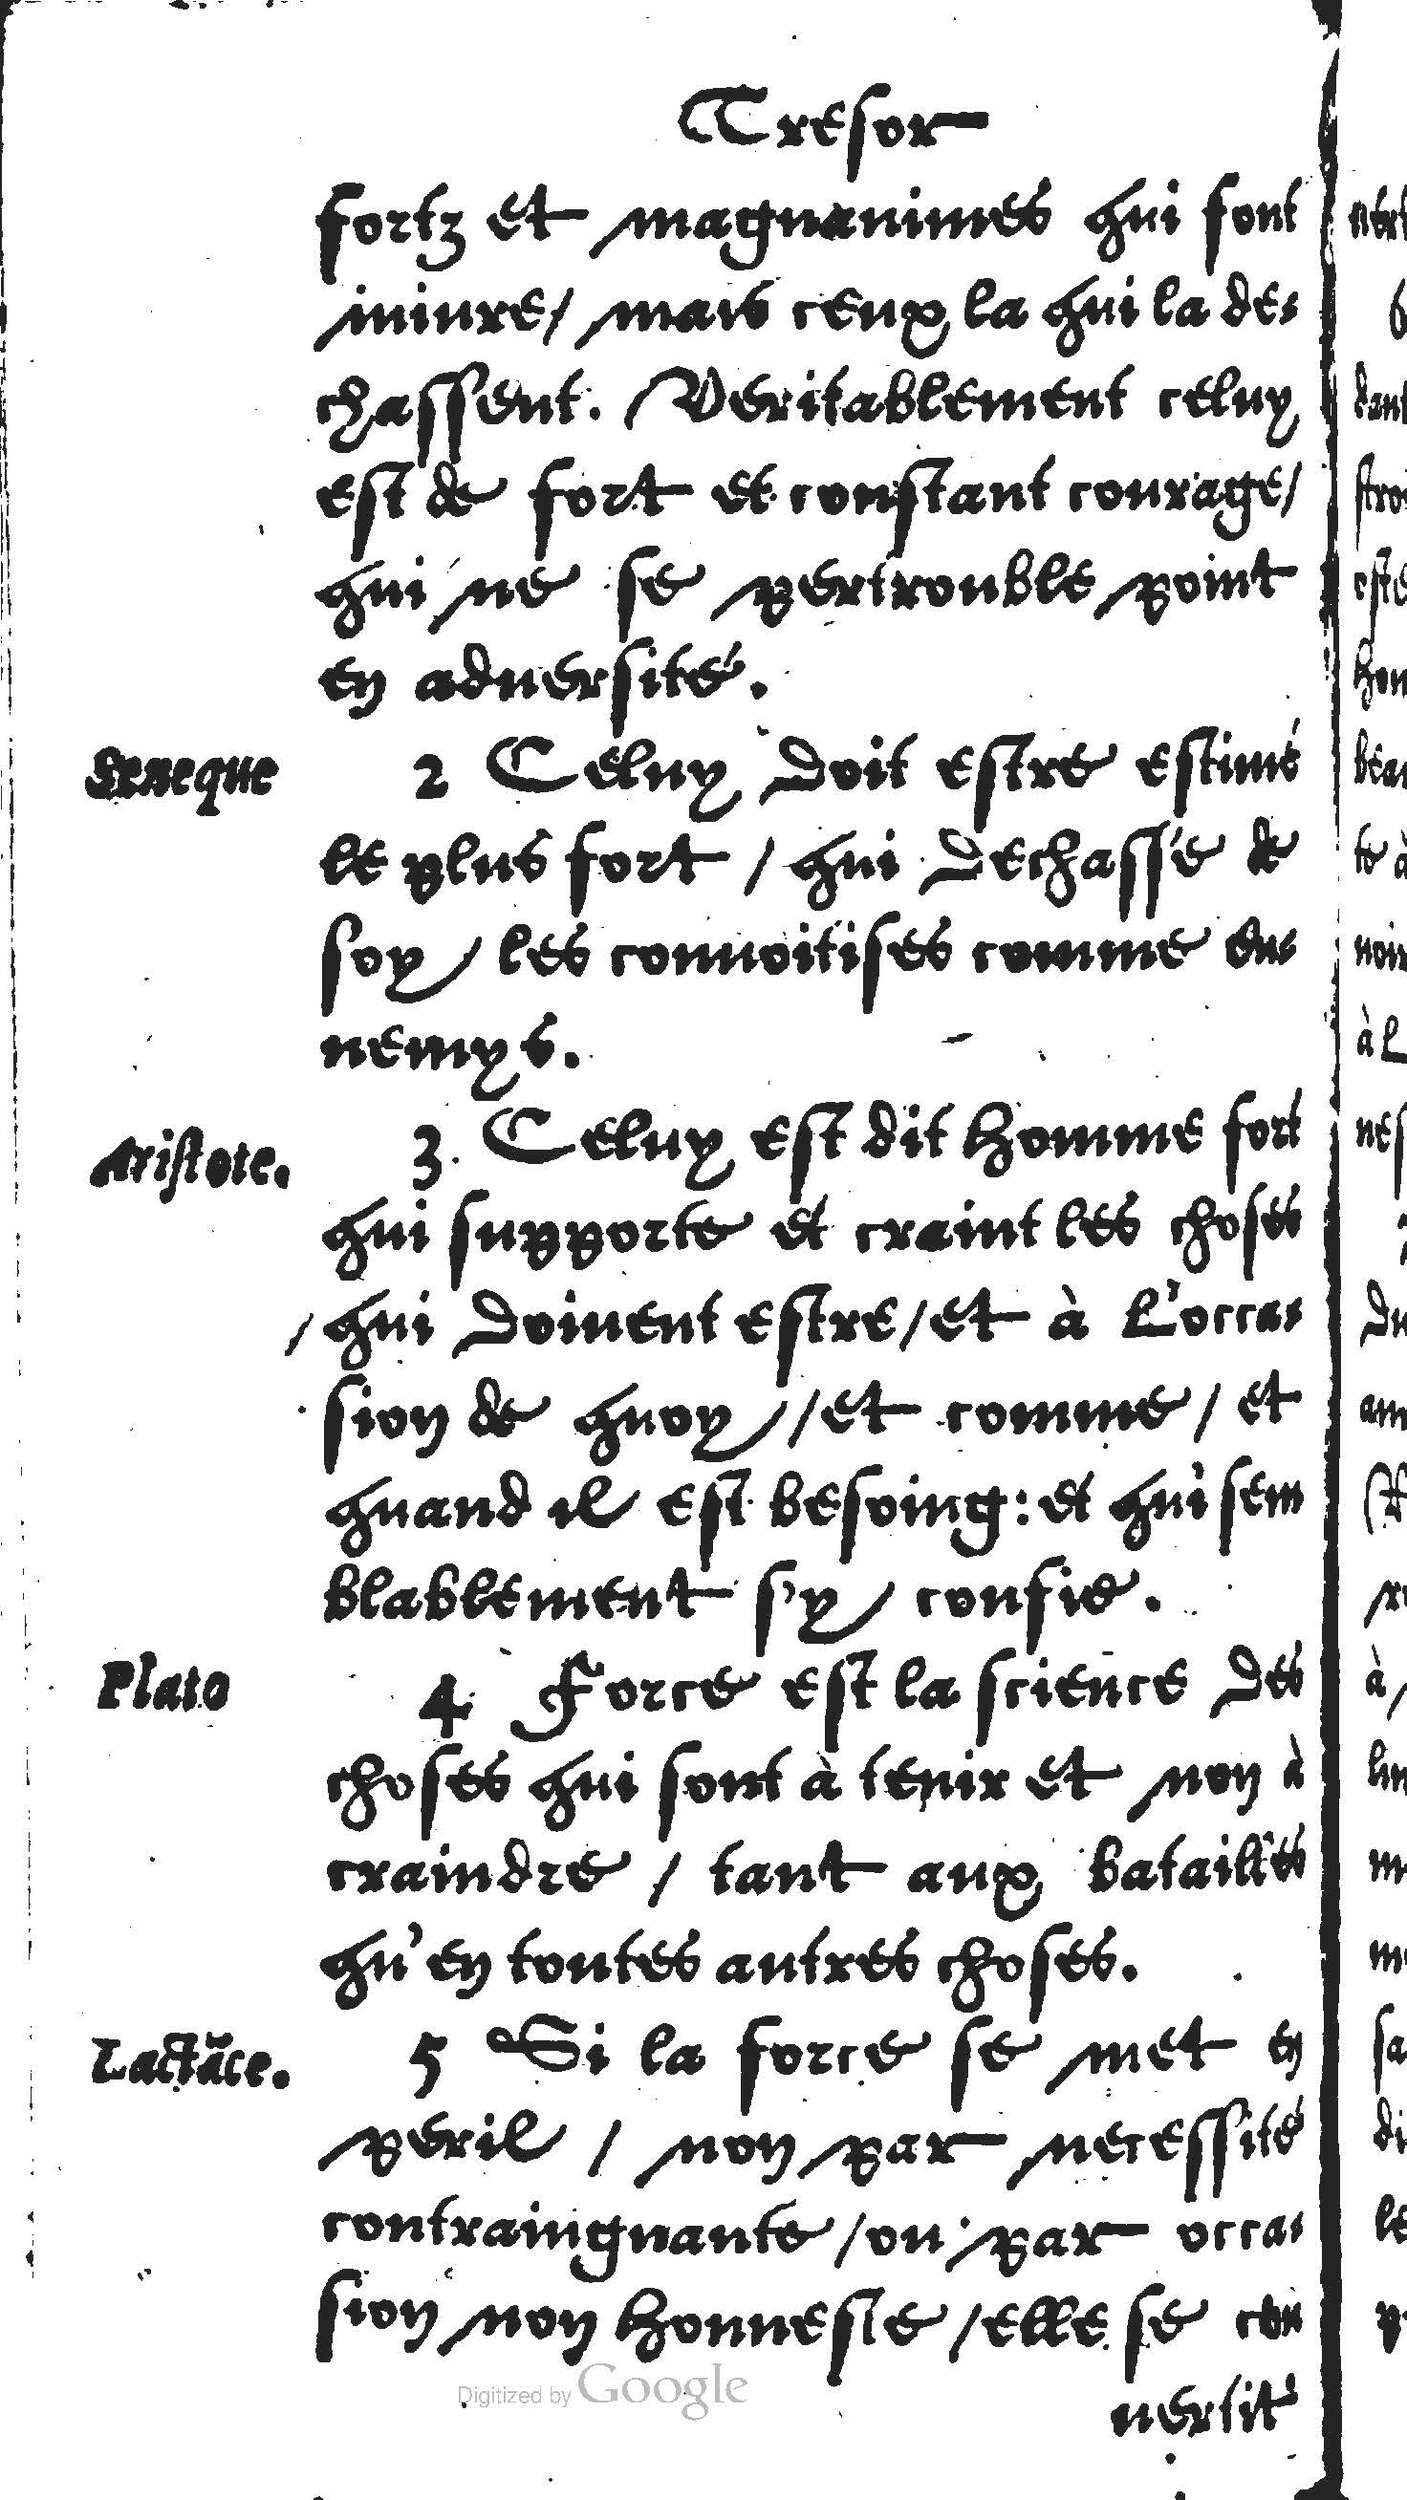 Tresor
fortz et magnanimes qui font
iniure/ mais ceux la qui la des
chassent. Veritablement celuy
est de fort et constant courage/
qui ne se pertrouble point
en aduersité.
Seneque
2 Celuy doit estre estimé
le plus fort / qui dechasse de
soy / les conuoitises comme en=
nemys.
Aristote.
3. Celuy est dit homme fort
qui supporte et craint les choses
/ qui doiuent estre/et à l'occa=
sion de quoy //et comme / et
quand il est besoing: et qui sem
blablement s'y confie.
Plato
4 Force est la science des
choses qui sont à tenir et non à
craindre / tant aux batailles
qu'en toutes autres choses.
Lactāce.
5 Si la force se met en
peril / non par necessité
contraingnante /ou par occa=
sion non honneste /elle se con
uertit
Digitized by Google